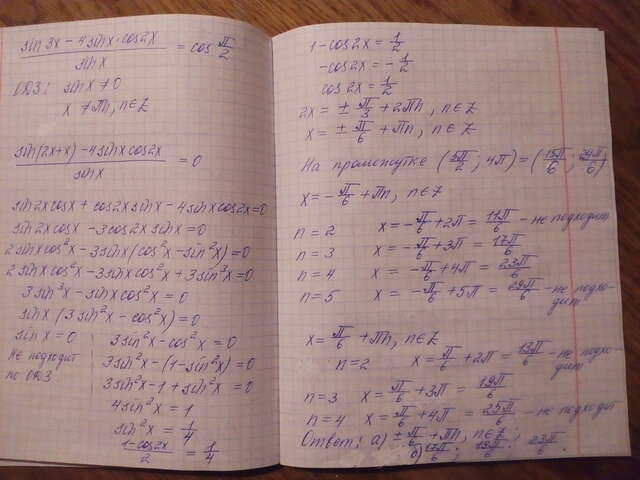 sin 3x - 4sinx · cos2x / sinx = cos π/2
ОДЗ: sinx ≠ 0
x ≠ πn, n∈Z
sin(2x+x) - 4sinx cos2x / sinx = 0
sin2x cosx + cos2x sinx - 4sinx cos2x = 0
sin2x cosx - 3cos2x sinx = 0
2sinx cos²x - 3sinx (cos²x - sin²x) = 0
2sinx cos²x - 3sinx cos²x + 3sin³x = 0
3sin³x - sinx cos²x = 0
sinx (3sin²x - cos²x) = 0
sinx = 0
не подходит
по ОДЗ
3sin²x - cos²x = 0
3sin²x - (1 - sin²x) = 0
3sin²x - 1 + sin²x = 0
4sin²x = 1
sin²x = 1/4
1-cos2x / 2 = 1/4
1 - cos2x = 1/2
-cos2x = -1/2
cos2x = 1/2
2x = ± π/3 + 2πn, n∈Z
x = ± π/6 + πn, n∈Z
На промежутке (5π/2; 4π) = (15π/6; 24π/6)
x = -π/6 + πn, n∈Z
n = 2 x = -π/6 + 2π = 11π/6 - не подходит
n = 3 x = -π/6 + 3π = 17π/6
n = 4 x = -π/6 + 4π = 23π/6
n = 5 x = -π/6 + 5π = 29π/6 - не подхо-
дит
x = π/6 + πn, n∈Z
n = 2 x = π/6 + 2π = 13π/6 - не подхо-
дит
n = 3 x = π/6 + 3π = 19π/6
n = 4 x = π/6 + 4π = 25π/6 - не подходит
Ответ: а) ± π/6 + πn, n∈Z;
б) 17π/6; 19π/6; 23π/6.